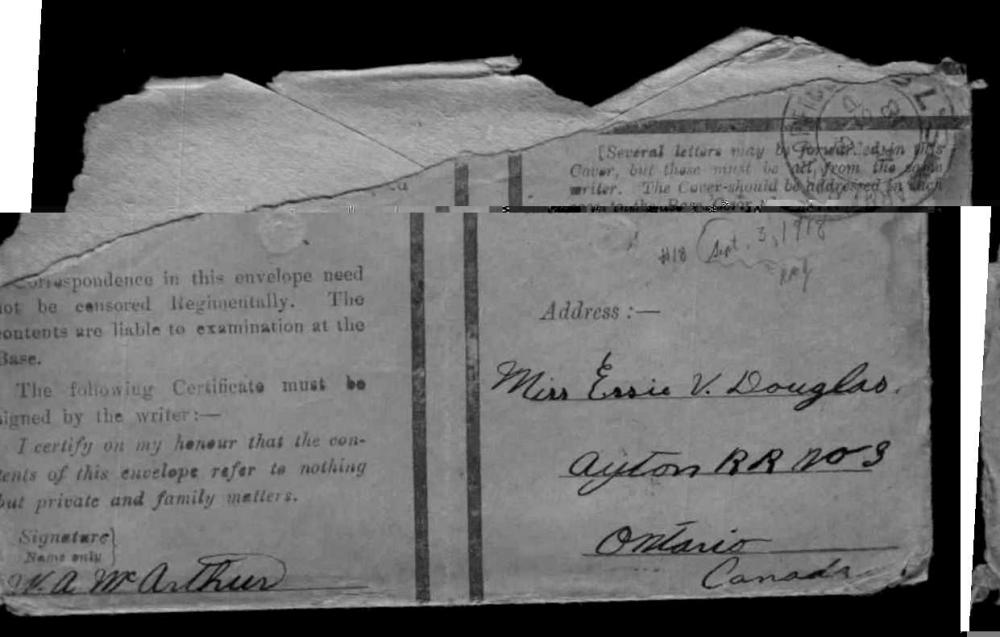 [Several letters may be forwarded in this
Cover, but these must be all from the same
writer. The Cover should be addressed in such
Correspondence in this envelope need
not be censored Regimentally. The
contents are liable to examination at the
Base.
The following Certificate must be
signed by the writer:—
I certify on my honour that the con-
tents of this envelope refer to nothing
but private and family matters.
Signature}
Name only
W. A. McArthur
#18 Sept. 3, 1918
Address :—
Miss Essie V. Douglas.
Ayton R R No 3
Ontario
Canada